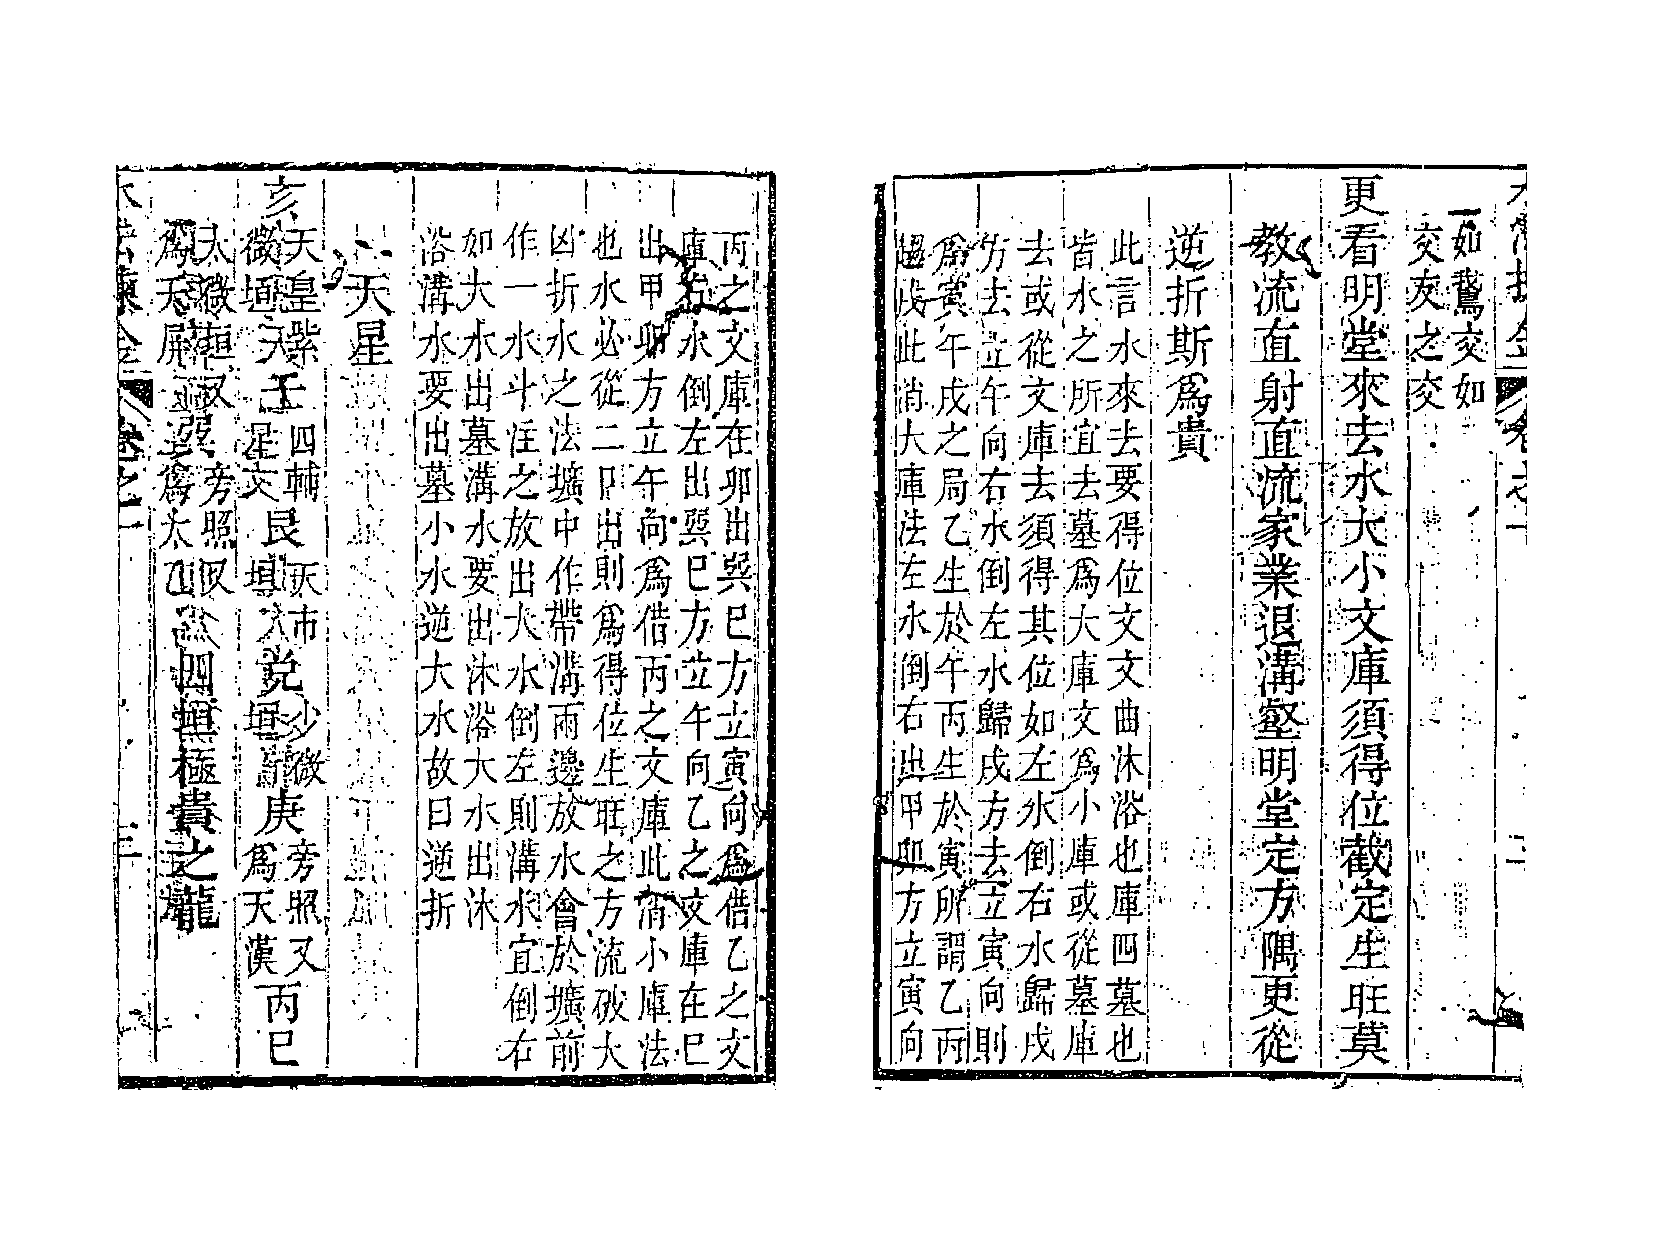 一如鵞交如
交友之交
更看明堂來去水大小文庫須得位截定生旺莫
教流直射直流家業退溝壑明堂定方隅更從
逆折斯爲貴
此言水來去要得位文文曲沐浴也庫四墓也
皆水之所宜去墓爲大庫文爲小庫或從墓庫
去或從文庫去須得其位如左水倒右水歸戌
方去立午向右水倒左水歸戌方去立寅向則
爲寅午戌之局乙生於午丙生於寅所謂乙丙
趨戌此消大庫法左水倒右出甲卯方立寅向
丙之文庫在卯出巽巳方立寅向爲借乙之文
庫右水倒左出巽巳方立午向乙之文庫在巳
出甲卯方立午向爲借丙之文庫此消小庫法
也水必從二口出則爲得位生旺之方流破大
凶折水之法壙中作帶溝兩邊放水會於壙前
作一水斗注之放出大水倒左則溝水宜倒右
如大水出墓溝水要出沐浴大水出沐
浴溝水要出墓小水逆大水故曰逆折
天星
亥天皇紫微垣天壬四輔星文艮天市垣兌少微垣庚旁照又爲天漢丙巳
太微垣又爲天屏巽旁照又爲太乙四垣極貴之龍
卷之一
三